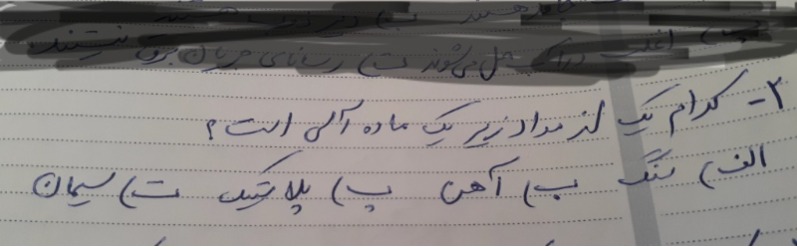 اغلب در آب حل می‌شوند ت) رسانای جریان برق نیستند
۲- کدام یک از مواد زیر یک ماده آلی است؟
الف) سنگ ب) آهن پ) پلاستیک ت) سیمان